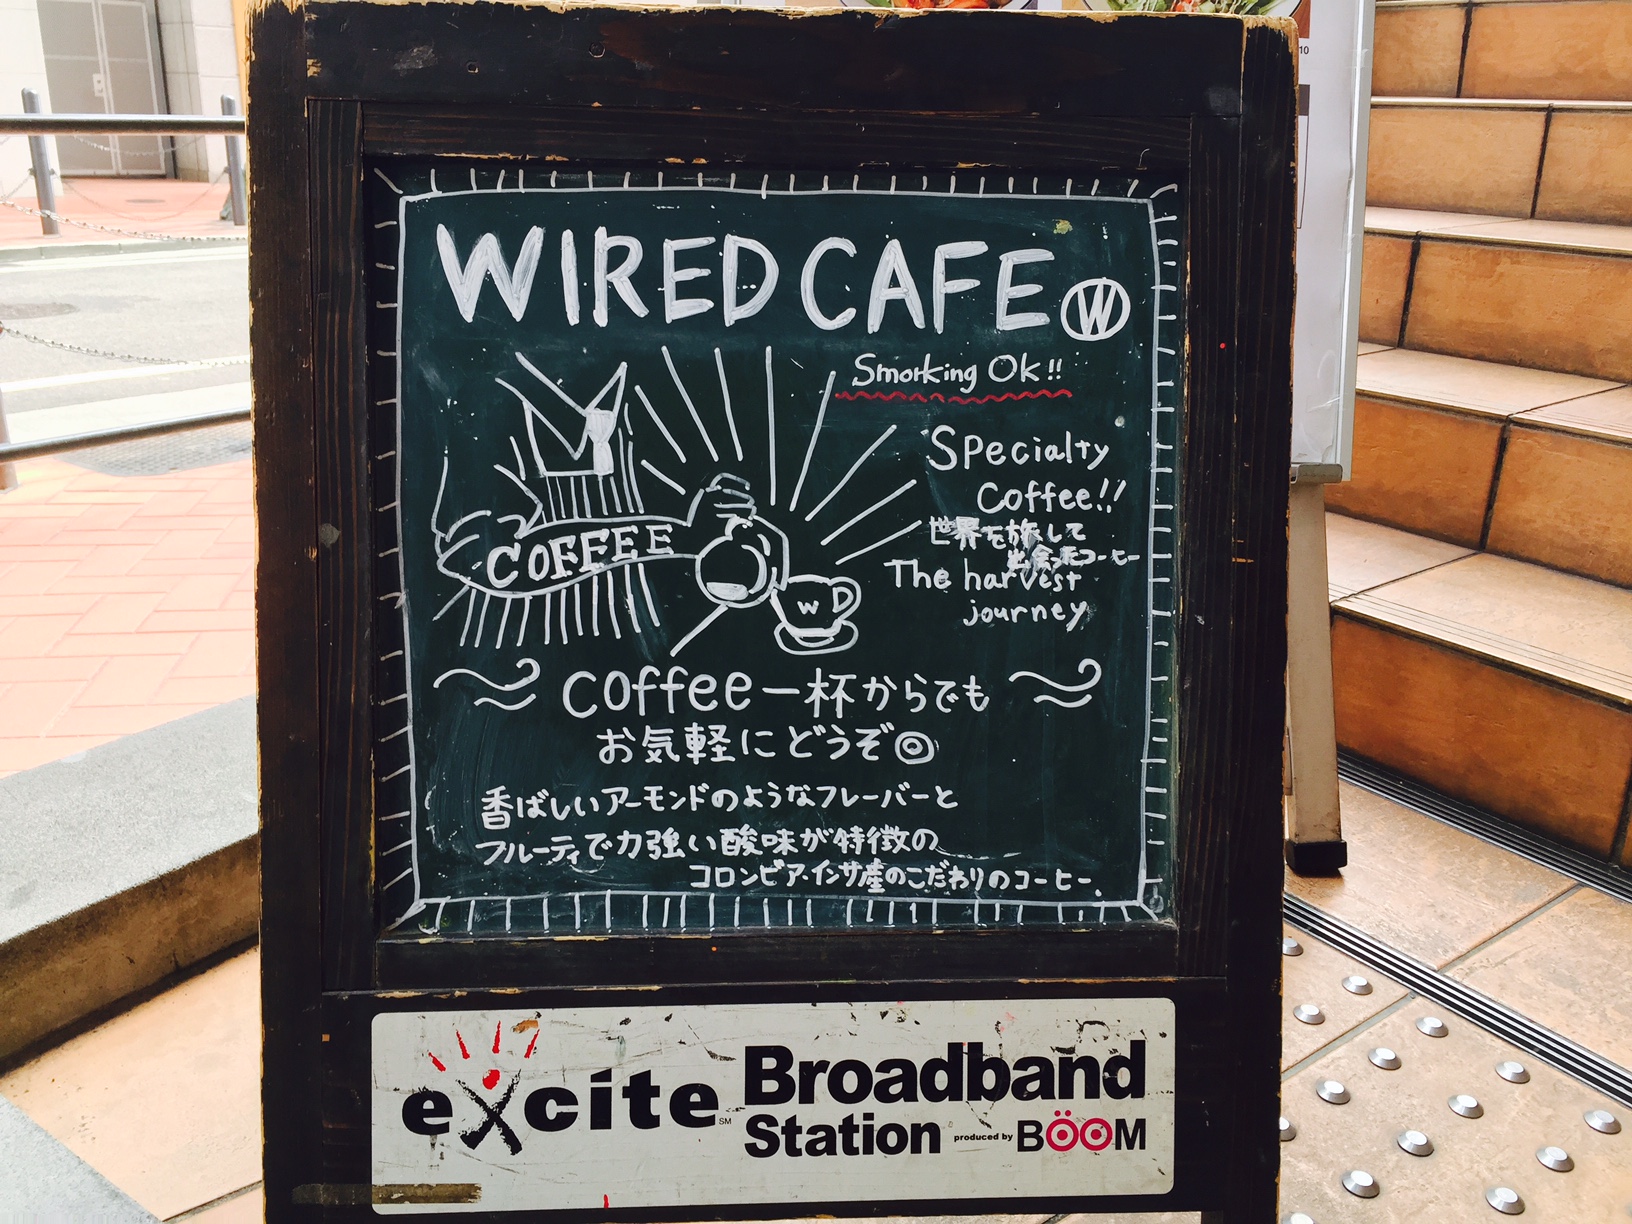 WIRED CAFE W
Smorking Ok!!
Specialty
Coffee!!
世界を旅して
出会ったコーヒー
The harvest
journey
COFFEE
W
coffee一杯からでも
お気軽にどうぞ◎
香ばしいアーモンドのようなフレーバーと
フルーティで力強い酸味が特徴の
コロンビア・インザ産のこだわりのコーヒー、
excite SM
Broadband
Station produced by BÖÖM
10